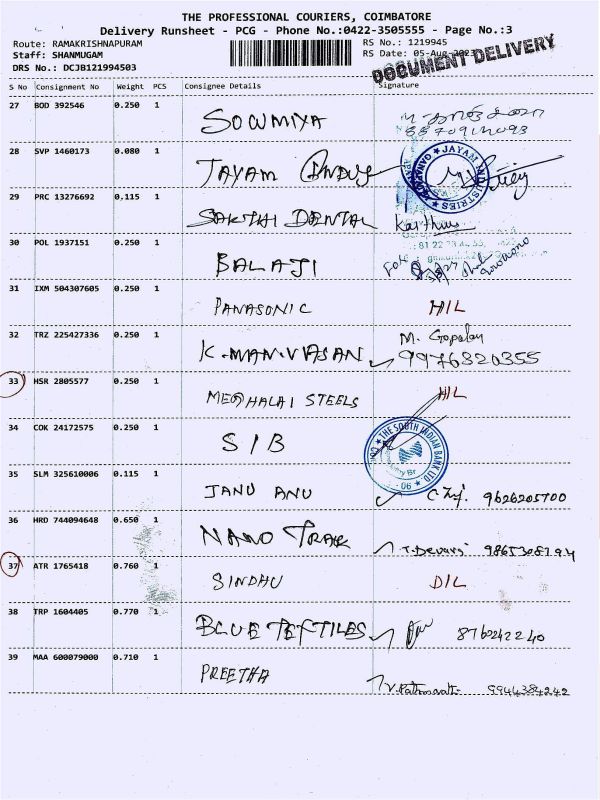 THE PROFESSIONAL COURIERS, COIMBATORE
Delivery Runsheet - PCG - Phone No.:0422-3505555 - Page No.:3
Route: RAMAKRISHNAPURAM
RS No.: 1219945
Staff: SHANMUGAM
RS Date: 05-Aug-2023
DRS No.: DCJB1219945​03
DOCUMENT DELIVERY
S No Consignment No Weight PCS Consignee Details Signature
27 BOD 392546 0.250 1 SOWMIYA
28 SVP 1460173 0.080 1 JAYAM
JAYAM INDUSTRIES
29 PRC 13276692 0.115 1 SAKTHI DENTAL Karthi
30 POL 1937151 0.250 1 BALAJI
31 IXM 504307605 0.250 1 PANASONIC HIL
32 TRZ 225427336 0.250 1 K.MANIVASAN M. Gopalan
9976320355
33 HSR 2805577 0.250 1 MEGHALAI STEELS HIL
34 COK 24172575 0.250 1 SIB
THE SOUTH INDIAN BANK LTD.
35 SLM 325610006 0.115 1 JANU ANU 9626205700
36 HRD 744094648 0.650 1 NANO TRAK T. Devaraj
37 ATR 1765418 0.760 1 SINDHU DIL
38 TRP 1604405 0.770 1 BLUE TEXTILES 876242240
39 MAA 600079000 0.710 1 PREETHA 9944384242